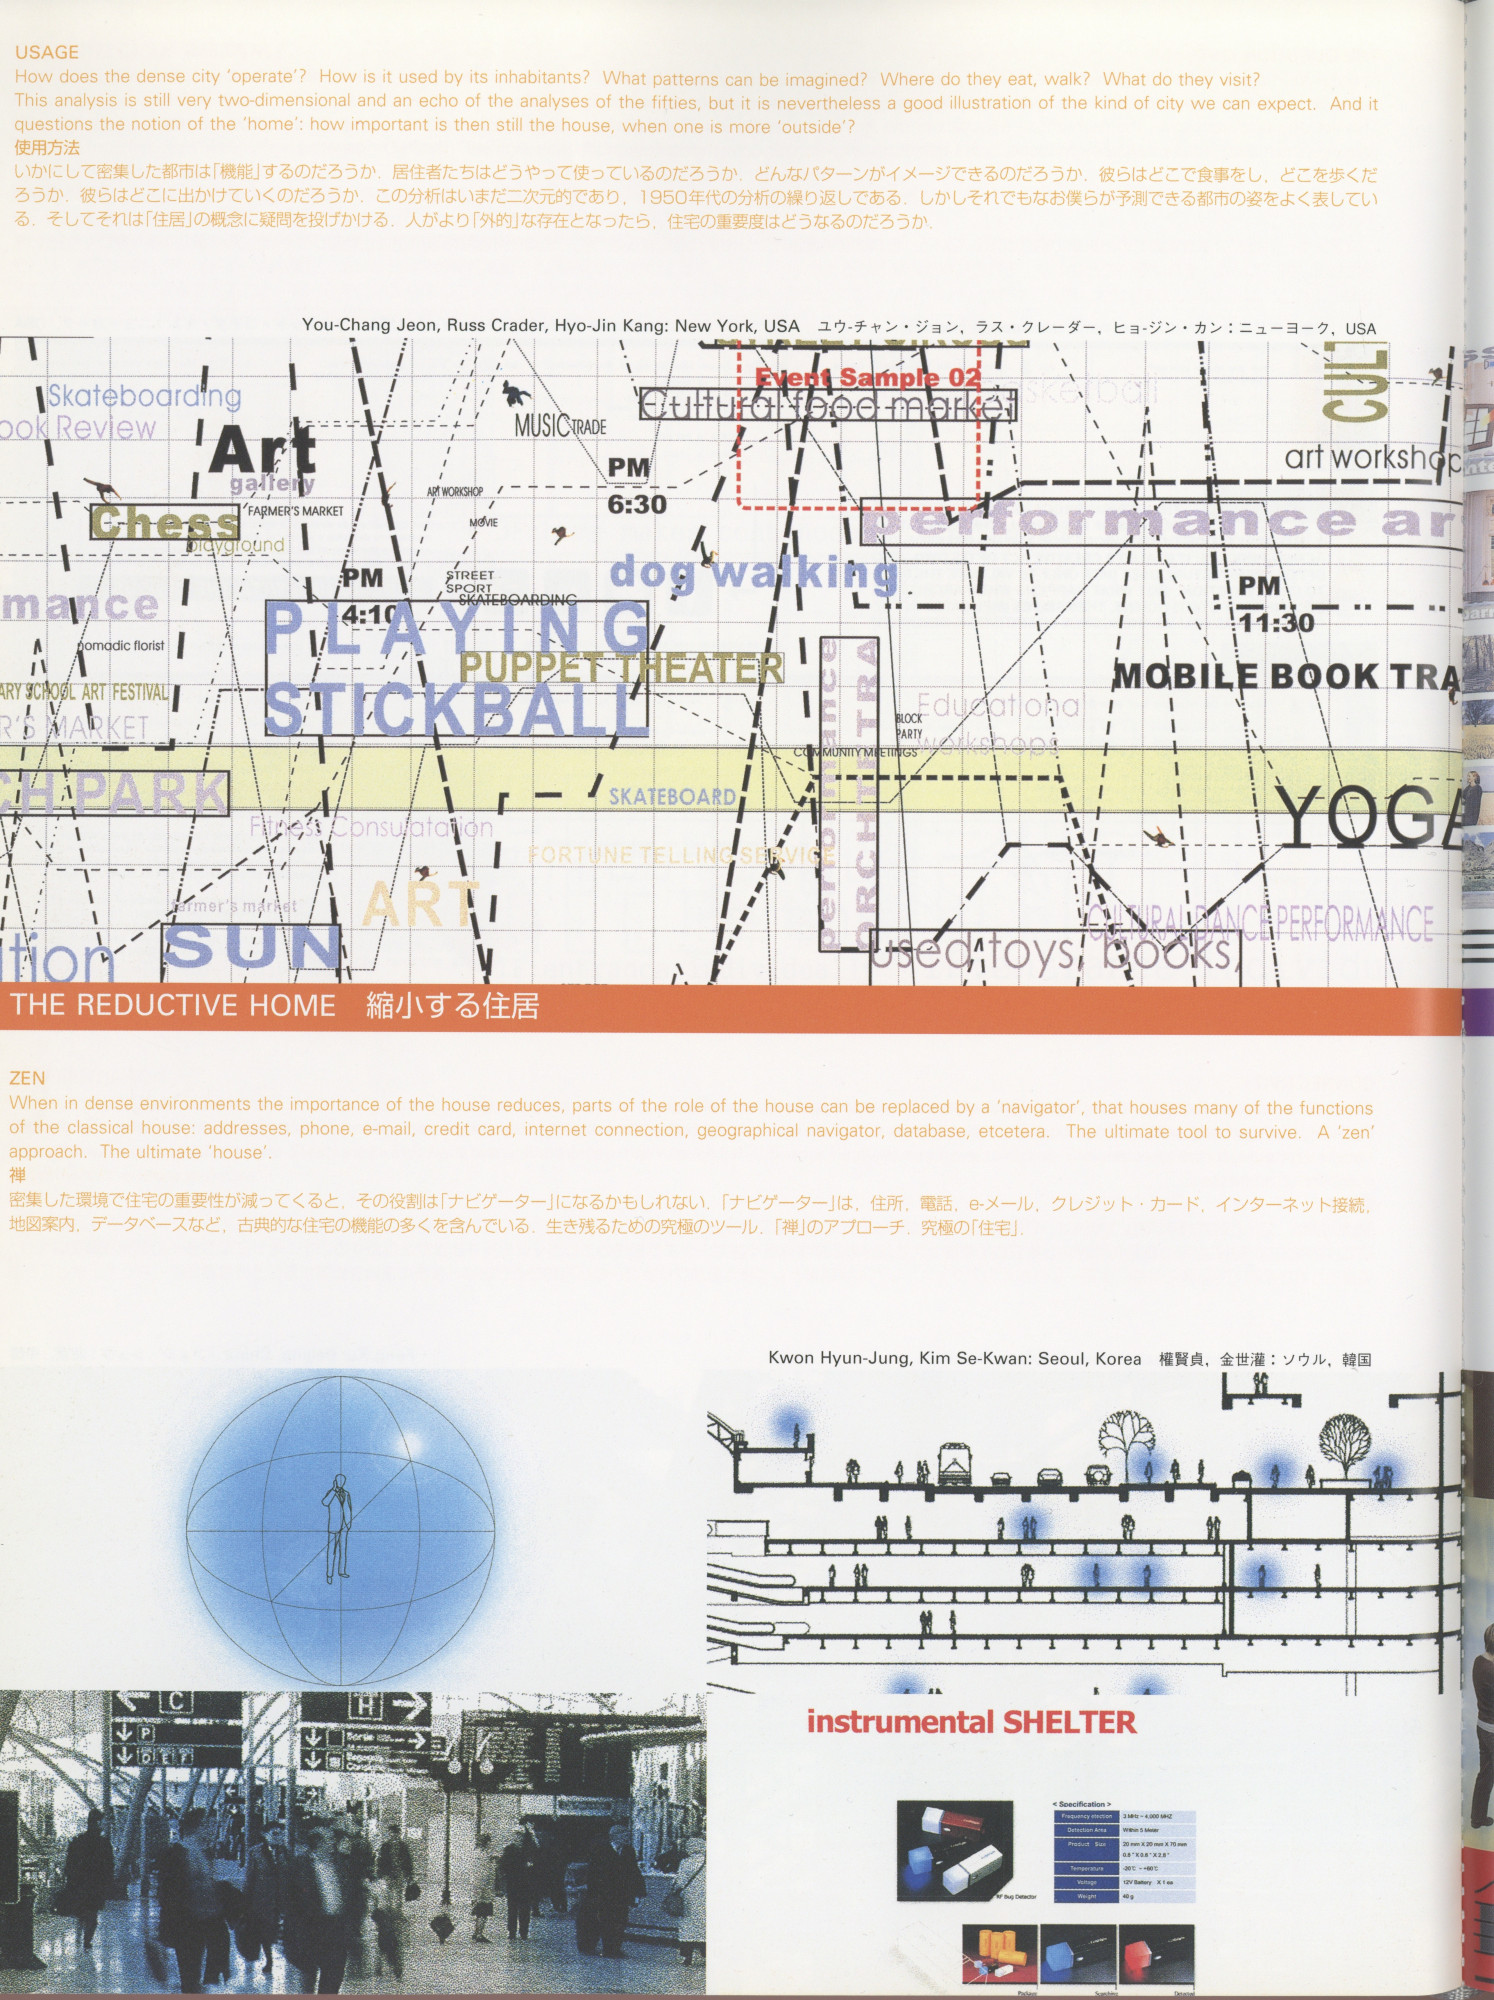 USAGE
How does the dense city ‘operate’? How is it used by its inhabitants? What patterns can be imagined? Where do they eat, walk? What do they visit?
This analysis is still very two-dimensional and an echo of the analyses of the fifties, but it is nevertheless a good illustration of the kind of city we can expect. And it
questions the notion of the ‘home’: how important is then still the house, when one is more ‘outside’?
使用方法
いかにして密集した都市は「機能」するのだろうか．居住者たちはどうやって使っているのだろうか．どんなパターンがイメージできるのだろうか．彼らはどこで食事をし，どこを歩くだ
ろうか．彼らはどこに出かけていくのだろうか．この分析はいまだ二次元的であり，1950年代の分析の繰り返しである．しかしそれでもなお僕らが予測できる都市の姿をよく表してい
る．そしてそれは「住居」の概念に疑問を投げかける．人がより「外的」な存在となったら，住宅の重要度はどうなるのだろうか．
You-Chang Jeon, Russ Crader, Hyo-Jin Kang: New York, USA ユウ-チャン・ジョン，ラス・クレーダー，ヒョ-ジン・カン：ニューヨーク，USA
Event Sample 02
Skateboarding
Cultural food market
basketball
CUL
ook Review
MUSIC TRADE
Art
gallery
art workshop
PM
6:30
ART WORKSHOP
Chess
FARMER'S MARKET
MOVIE
performance ar
playground
dog walking
PM
4:10
STREET
SPORT
SKATEBOARDING
PM
11:30
mance
PLAYING
STICKBALL
nomadic florist
PUPPET THEATER
MOBILE BOOK TRA
ARY SCHOOL ART FESTIVAL
R'S MARKET
performance
ORCHESTRA
Educational
workshops
BLOCK
PARTY
COMMUNITY MEETINGS
CH PARK
SKATEBOARD
YOGA
Fitness Consulatation
FORTUNE TELLING SERVICE
ART
farmer's market
SUN
tion
CULTURAL DANCE PERFORMANCE
used toys, books,
THE REDUCTIVE HOME 縮小する住居
ZEN
When in dense environments the importance of the house reduces, parts of the role of the house can be replaced by a ‘navigator’, that houses many of the functions
of the classical house: addresses, phone, e-mail, credit card, internet connection, geographical navigator, database, etcetera. The ultimate tool to survive. A ‘zen’
approach. The ultimate ‘house’.
禅
密集した環境で住宅の重要性が減ってくると，その役割は「ナビゲーター」になるかもしれない．「ナビゲーター」は，住所，電話，e-メール，クレジット・カード，インターネット接続，
地図案内，データベースなど，古典的な住宅の機能の多くを含んでいる．生き残るための究極のツール．「禅」のアプローチ．究極の「住宅」．
Kwon Hyun-Jung, Kim Se-Kwan: Seoul, Korea 權賢貞，金世灌：ソウル，韓国
C
H
P
D E F
instrumental SHELTER
< Specification >
Frequency etection 3 MHz ~ 4,000 MHZ
Detection Area Within 5 Meter
Product Size 20 mm X 20 mm X 70 mm
0.8 " X 0.8 " X 2.8 "
Temperature -20℃ ~ +60℃
Voltage 12V Battery X 1 ea
Weight 40 g
RF Bug Detector
Package
Searching
Detected